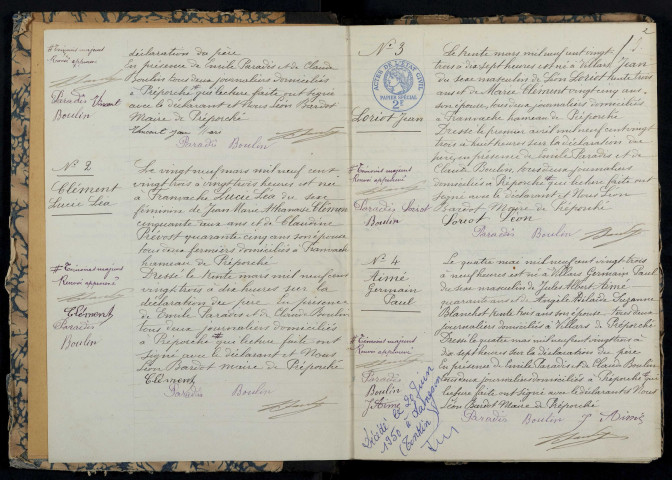 déclaration du père
en présence de Emile Paradis et de Claude
Boulin tous deux journaliers domiciliés
à Préporché que lecture faite ont signé
avec le déclarant et Nous Léon Bardot
Maire de Préporché
Paradis Boulin
Renvoi approuvé
Paradis
Boulin
N° 2
Clément
Lucie Léa
Le vingt neuf mars mil neuf cent
vingt trois à vingt trois heures est née
à Franvache Lucie Léa du sexe
féminin de Jean Marie Athanase Clément
cinquante deux ans et de Claudine
Prévost quarante cinq ans son épouse
tous deux fermiers domiciliés à Franvache
hameau de Préporché
Dressé le trente mars mil neuf cent
vingt trois à dix heures sur la
déclaration du père en présence
de Emile Paradis et de Claude Boulin
tous deux journaliers domiciliés
à Préporché que lecture faite ont
signé avec le déclarant et Nous
Léon Bardot maire de Préporché
Clément
Paradis Boulin
Renvoi approuvé
Clément
Paradis
Boulin
2
N° 3
ACTES DE L'ÉTAT CIVIL
PAPIER SPÉCIAL
2F
Loriot Jean
Le trente mars mil neuf cent vingt
trois à dix sept heures est né à Villars Jean
du sexe masculin de Léon Loriot trente trois
ans et de Marie Clément vingt cinq ans
son épouse, tous deux journaliers domiciliés
à Franvache hameau de Préporché
Dressé le premier avril mil neuf cent vingt
trois à huit heures sur la déclaration du
père, en présence de Emile Paradis et de
Claude Boulin, tous deux journaliers
domiciliés à Préporché que lecture faite ont
signé avec le déclarant et Nous Léon
Bardot Maire de Préporché
Loriot Léon
Paradis Boulin
Renvoi approuvé
Paradis
Boulin
N° 4
Aimé
Germain
Paul
Le quatre mai mil neuf cent vingt trois
à neuf heures est né à Villars Germain Paul
du sexe masculin de Jules Albert Aimé
quarante ans et de Angèle Suzanne
Blanchot trente trois ans son épouse tous deux
journaliers domiciliés à Villars de Préporché
Dressé le quatre mai mil neuf cent vingt trois à
dix sept heures sur la déclaration du père
en présence de Emile Paradis et de Claude Boulin
tous deux journaliers domiciliés à Préporché que
lecture faite ont signé avec le déclarant et Nous
Léon Bardot Maire de Préporché
Paradis Boulin J. Aimé
Renvoi approuvé
Paradis
Boulin
J. Aimé
Décédé le 20 juin
1950 à
(Tonkin)